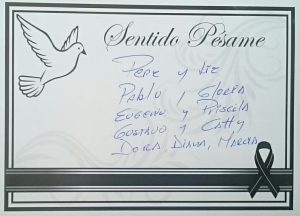 Sentido Pésame
Pepe y Liz
Pablo y Gloria
Eugenio y Priscila
Gustavo y Catty
Dora, Diana, Marcia